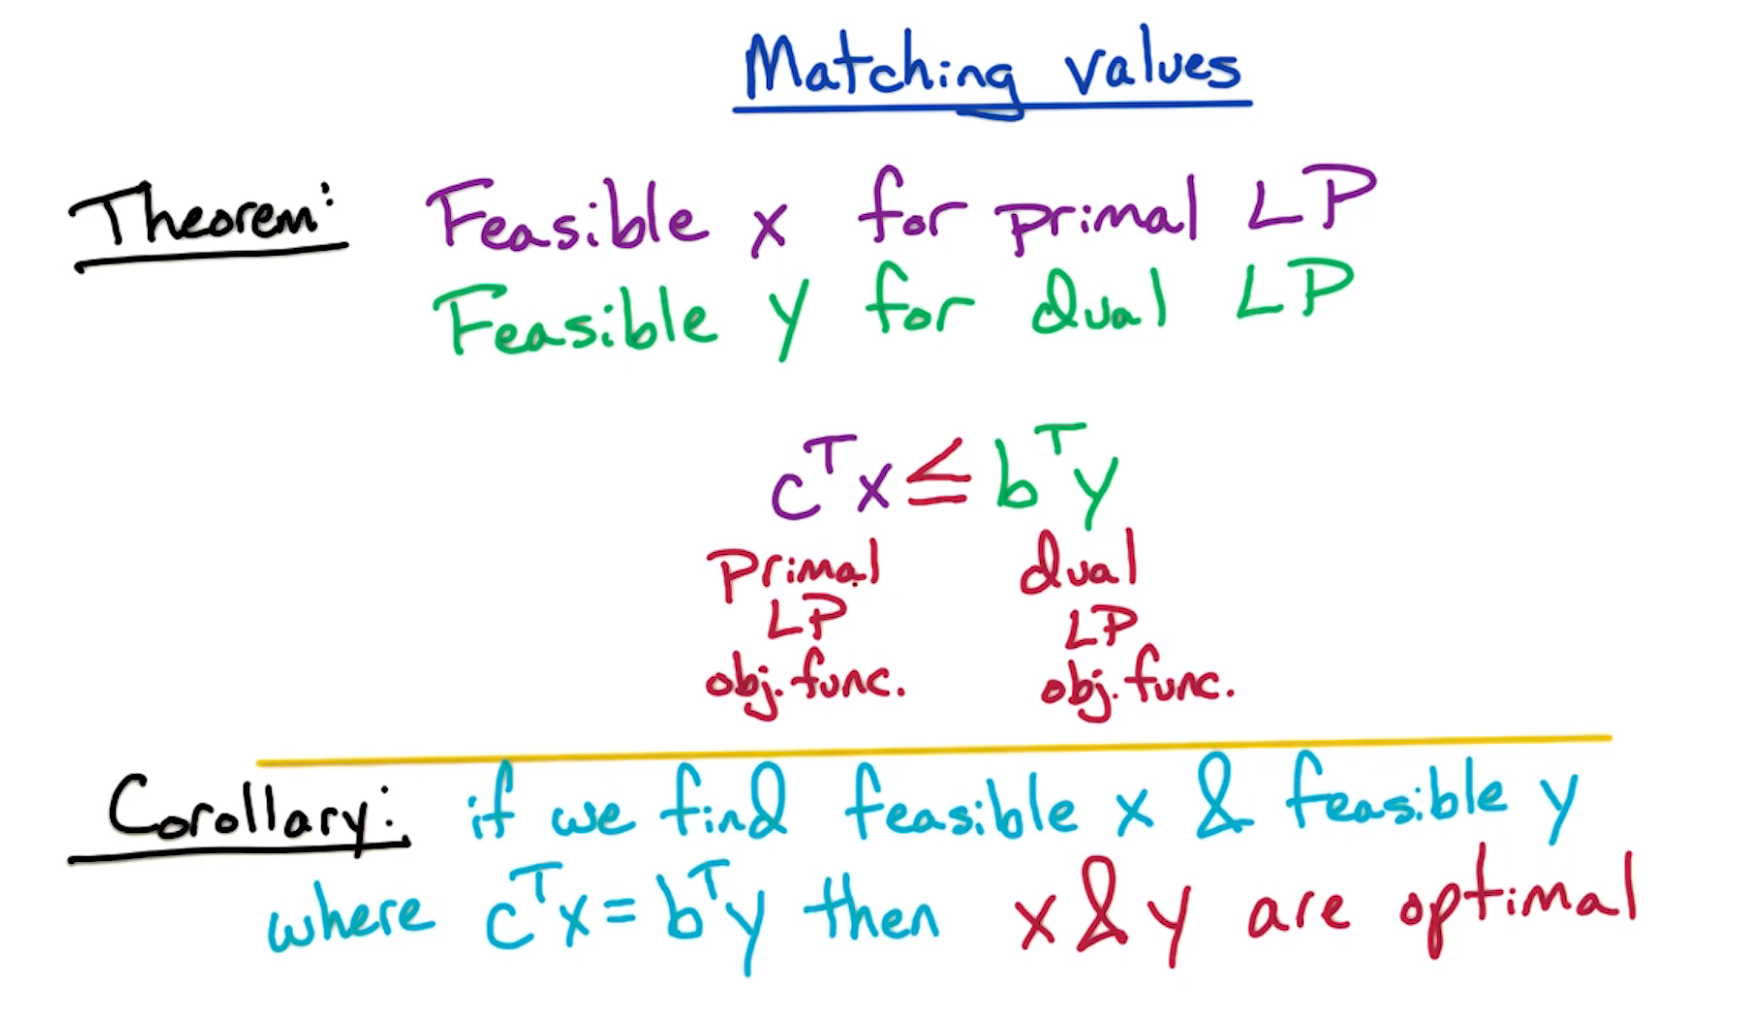 Matching values
Theorem: Feasible x for primal LP
Feasible y for dual LP
cᵀx ≤ bᵀy
primal dual
LP LP
obj. func. obj. func.
Corollary: if we find feasible x & feasible y
where cᵀx = bᵀy then x & y are optimal